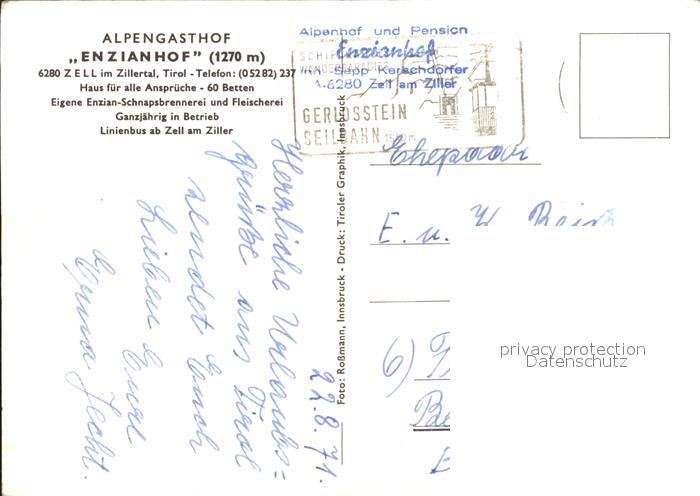 ALPENGASTHOF
„ENZIANHOF” (1270 m)
6280 ZELL im Zillertal, Tirol - Telefon: (0 52 82) 237
Haus für alle Ansprüche - 60 Betten
Eigene Enzian-Schnapsbrennerei und Fleischerei
Ganzjährig in Betrieb
Linienbus ab Zell am Ziller
Alpenhof und Pension
Enzianhof
Sepp Kerschdorfer
A-6280 Zell am Ziller
GERLOSSTEIN
SEILBAHN
Foto: Roßmann, Innsbruck - Druck: Tiroler Graphik, Innsbruck
22.8.71.
Herzliche Urlaubs=
grüße aus Tirol
sendet Euch
Lieben Eure
Erna Hecht.
Ehepaar
E. u. W
6)
privacy protection
Datenschutz